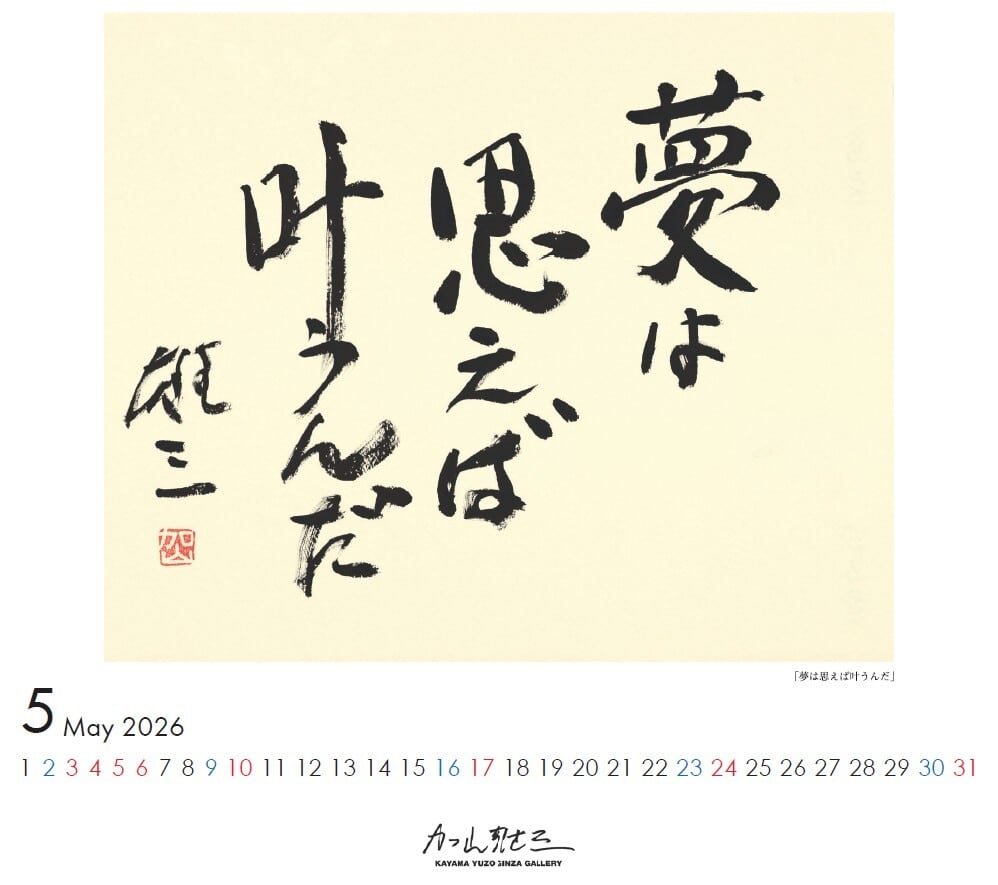 夢は
思えば
叶うんだ
雄三
「夢は思えば叶うんだ」
5 May 2026
1 2 3 4 5 6 7 8 9 10 11 12 13 14 15 16 17 18 19 20 21 22 23 24 25 26 27 28 29 30 31
加山雄三
KAYAMA YUZO GINZA GALLERY